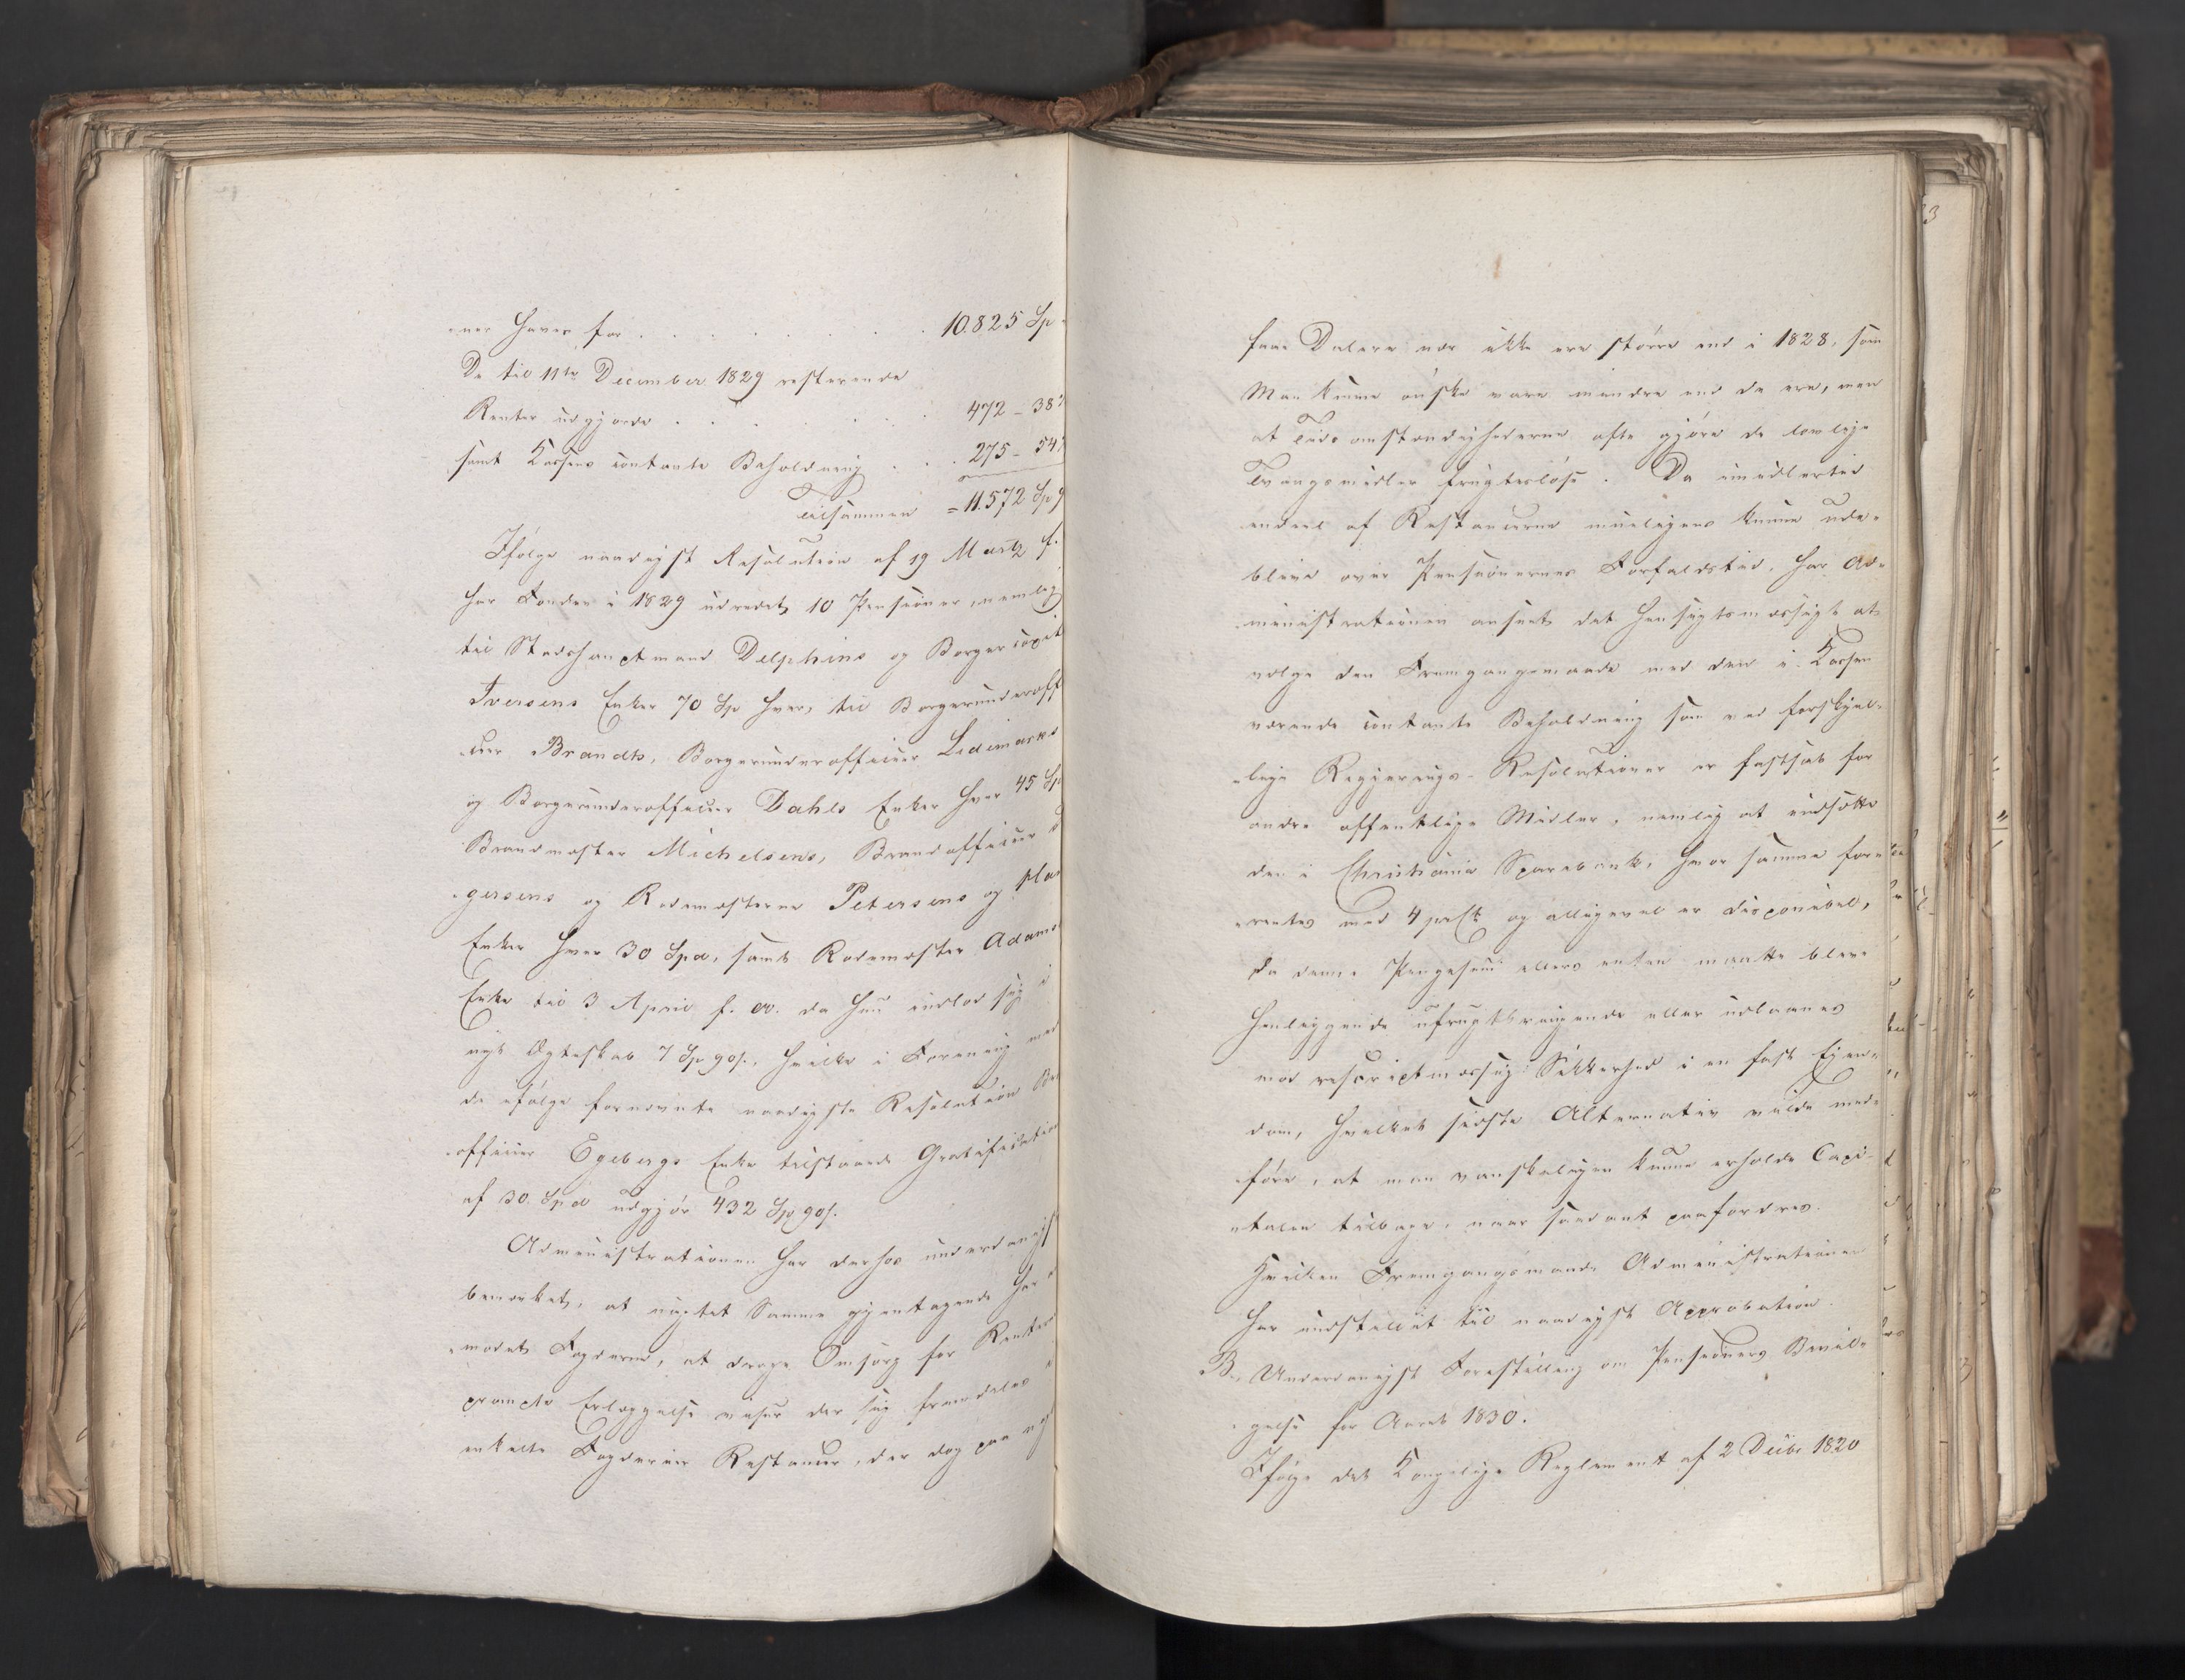 -ner haves for . . . . . . . 10.825 Sp
De til 11te December 1829 resterende
Renter udgjorde . . . . . 472 - 38
samt Kassens contante Beholdning . . . 275 - 54
Tilsammen = 11.572 Sp
Ifølge naadigst Resolution af 19 Martz f.
har Fonden i 1829 udredet 10 Pensioner, nemlig
til Stadshauptmand Delphins og Borgercapit
Iversens Enker 70 Sp hver, til Borgerunderoff
-cier Brandts, Borgerunderofficier Lidemarks
og Borgerunderofficier Dahls Enker hver 45 Sp
Brandmester Michelsens, Brandofficier
-gersens og Rodemesterne Petersens og
Enker hver 30 Spd, samt Rodemester Adams
Enke til 3 April f. A. da hun indlod sig i
nyt Ægteskab 7 Sp 90 s., hvilke i Forening med
de ifølge fornævnte naadigste Resolution
-officier Egebergs Enke tilstaaede Gratification
af 30 Spd udgjør 432 Sp 90 s.
Administrationen har derhos underdanigst
bemærket, at uagtet Samme gjentagende har
-modet Fogderne, at drage Omsorg for Renter
prompte Erlæggelse viser der sig fremdeles
enkelte Fogderier Restancer, der dog paa
faae Dalere nær ikke ere større end i 1828, som
Man kunne ønske vare mindre end de ere, men
at Tidsomstændighederne ofte gjøre de lovlige
Tvangsmidler frugtesløse. Da imidlertid
endeel af Restancerne mueligens kunne ude-
blive over Pensionernes Forfaldstid, har Ad-
-ministrationen anseet det hensigtsmæssigt at
vælge den Fremgangsmaade med den i Kassen
værende contante Beholdning som ved forskjel-
-lige Regjerings-Resolutioner er fastsat for
andre offentlige Midler, nemlig at indsætte
den i Christiania Sparebank, hvor samme for-
-rentes med 4 prCt og alligevel er disponibel,
da denne Pengesum ellers enten maatte blive
henliggende ufrugtbringende eller udlaanes
mod rescriptmæssig Sikkerhed i en fast Ejen-
dom, hvilket sidste Alternativ vilde med-
-føre, at man vanskeligen kunne erholde Capi-
-talen tilbage, naar saadant paafordres.
Hvilken Fremgangsmaade Administrationen
har indstillet til naadigst Approbation.
B., Underdanigst Forestilling om Pensioners Bevil-
-gelse for Aaret 1830.
Ifølge det Kongelige Reglement af 2 Decbr 1820